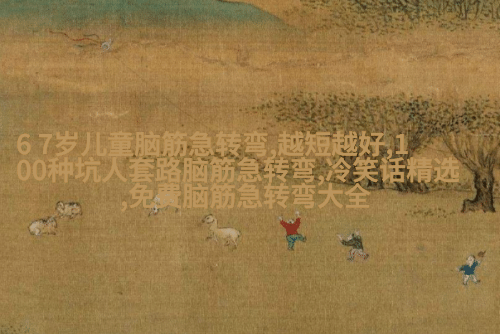 6 7岁儿童脑筋急转弯,越短越好,1
00种坑人套路脑筋急转弯,冷笑话精选
,免费脑筋急转弯大全